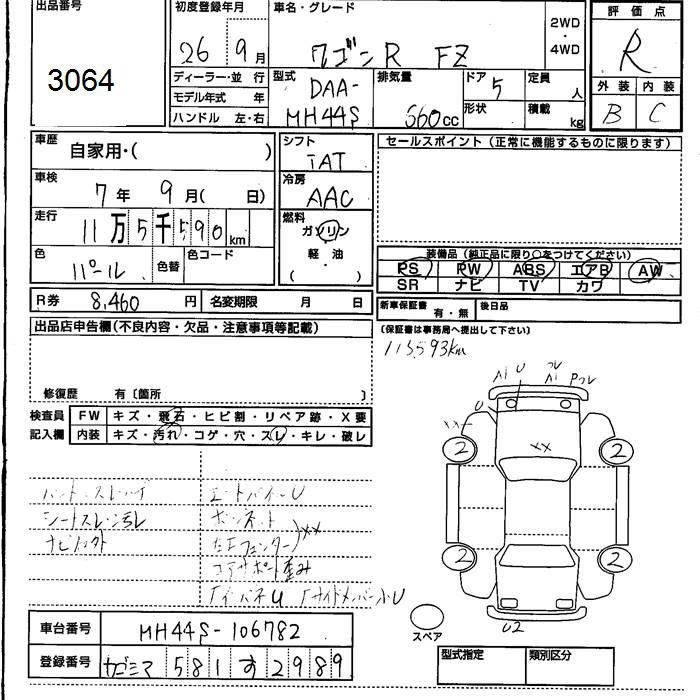 出品番号
3064
初度登録年月
26 9月
車名・グレード
ワゴンR FZ
2WD
・
4WD
評価点
R
外装 内装
B C
ディーラー・並行
モデル年式 年
ハンドル 左・右
型式
DAA-
MH44S
排気量
660cc
ドア
5
形状
定員
人
積載
kg
車歴
自家用・( )
車検
7年 9月( 日)
走行
11万5千590km
色
パール
色替
色コード
シフト
IAT
冷房
AAC
燃料
ガソリン
・
軽油
( ・ )
セールスポイント(正常に機能するものに限ります)
装備品(純正品に限り○をつけてください)
PS PW ABS エアB AW
SR ナビ TV カワ
R券 8,460円
名変期限 月 日
新車保証書 有・無
後日品
(保証書は事務局へ提出して下さい)
出品店申告欄(不良内容・欠品・注意事項等記載)
修復歴 有〔箇所 〕
115,593km
検査員
記入欄
FW キズ・飛石・ヒビ割・リペア跡・X要
内装 キズ・汚れ・コゲ・穴・スレ・キレ・破レ
シートスレ・汚レ
ボンネット
コアサポート歪み
U
XX
XX
2
2
2
2
U2
スペア
車台番号 MH44S-106782
登録番号 カゴシマ 581す2989
型式指定
類別区分